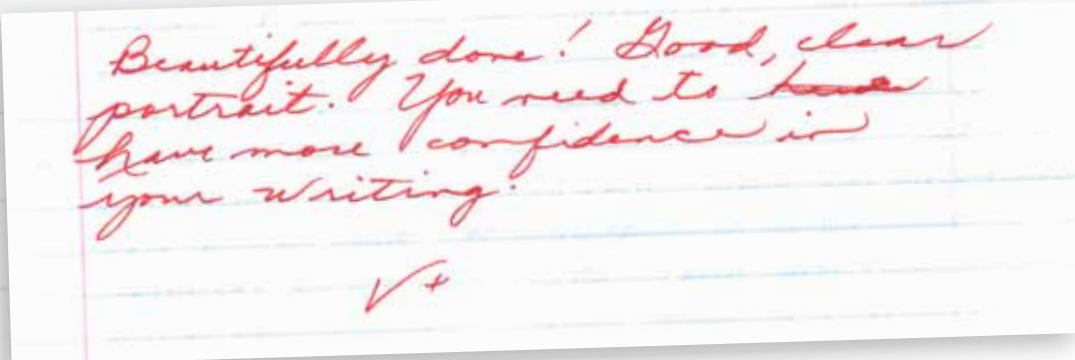 Beautifully done! Good, clear
portrait. You need to have
have more confidence in
your writing.
✓+